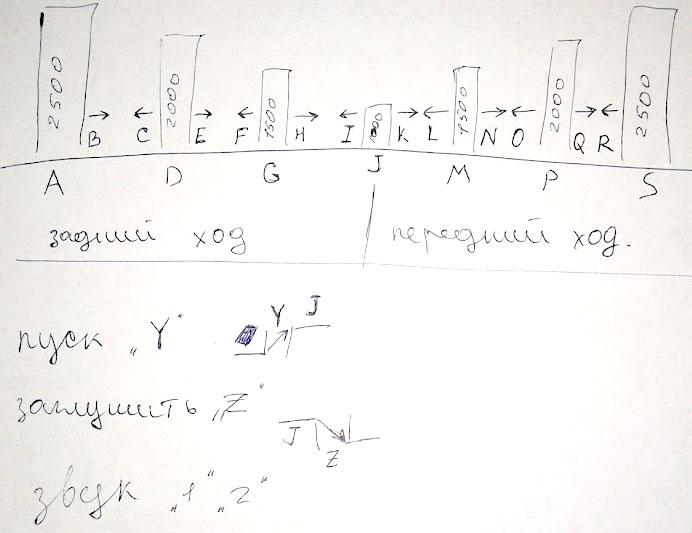 2500 2000 1500 1000 1500 2000 2500
B → ← C E → ← F H → ← I K → ← L N → ← O Q → ← R
A D G J M P S
задний ход передний ход.
пуск „Y“ Y J
заглушить „Z“ J Z
звук „1“ „2“